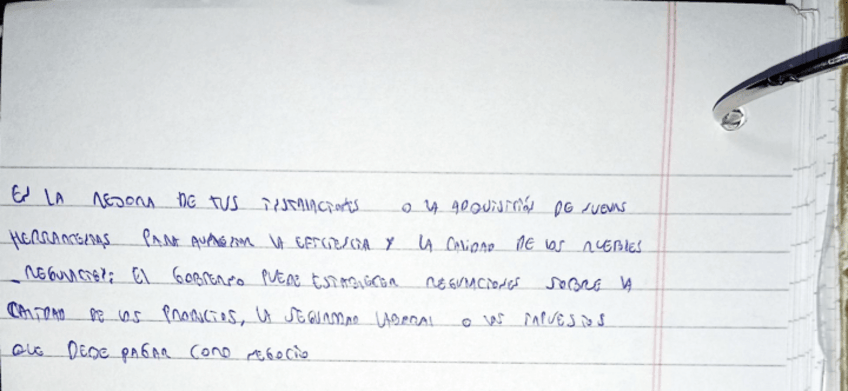 EN LA MEJORA DE TUS INSTALACIONES O LA ADQUISICIÓN DE NUEVAS
HERRAMIENTAS PARA AUMENTAR LA EFICIENCIA Y LA CALIDAD DE LOS MUEBLES
_ REGULACION: EL GOBIERNO PUEDE ESTABLECER REGULACIONES SOBRE LA
CALIDAD DE LOS PRODUCTOS, LA SEGURIDAD LABORAL O LOS IMPUESTOS
QUE DEBE PAGAR COMO NEGOCIO